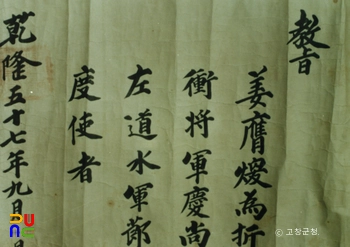 教旨
姜膺煥為折
衝將軍慶尚
左道水軍節
度使者
乾隆五十七年九月 日
© 고창군청